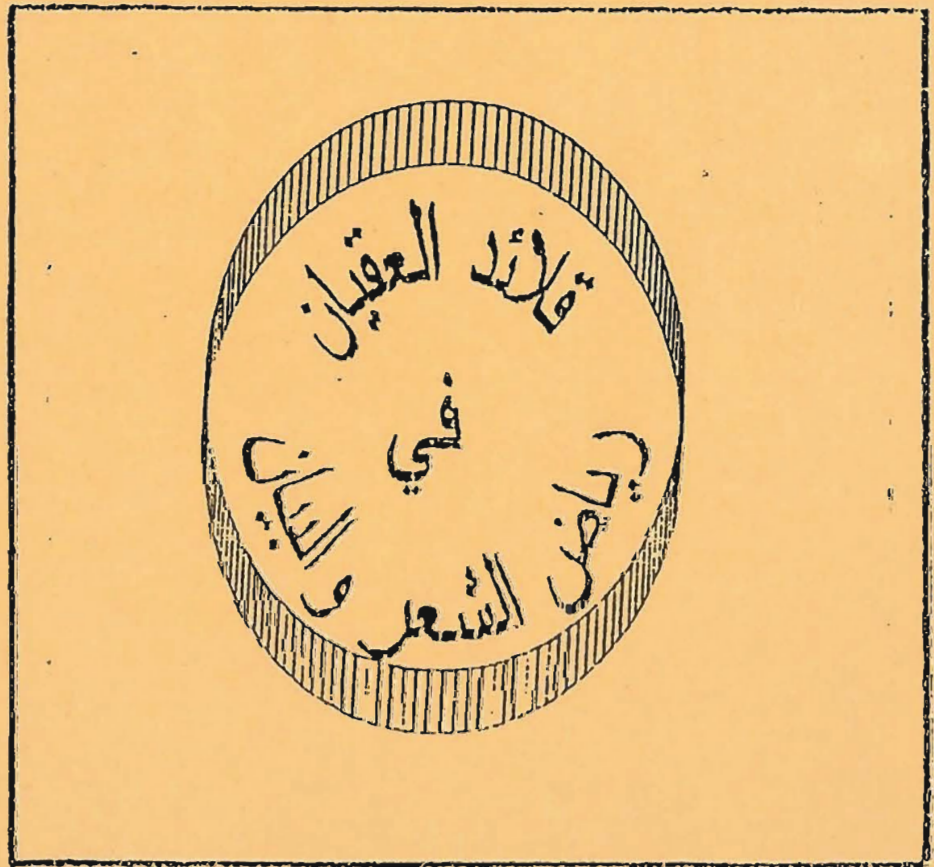 قلائد العقيان
في
رياض الشعر والبيان